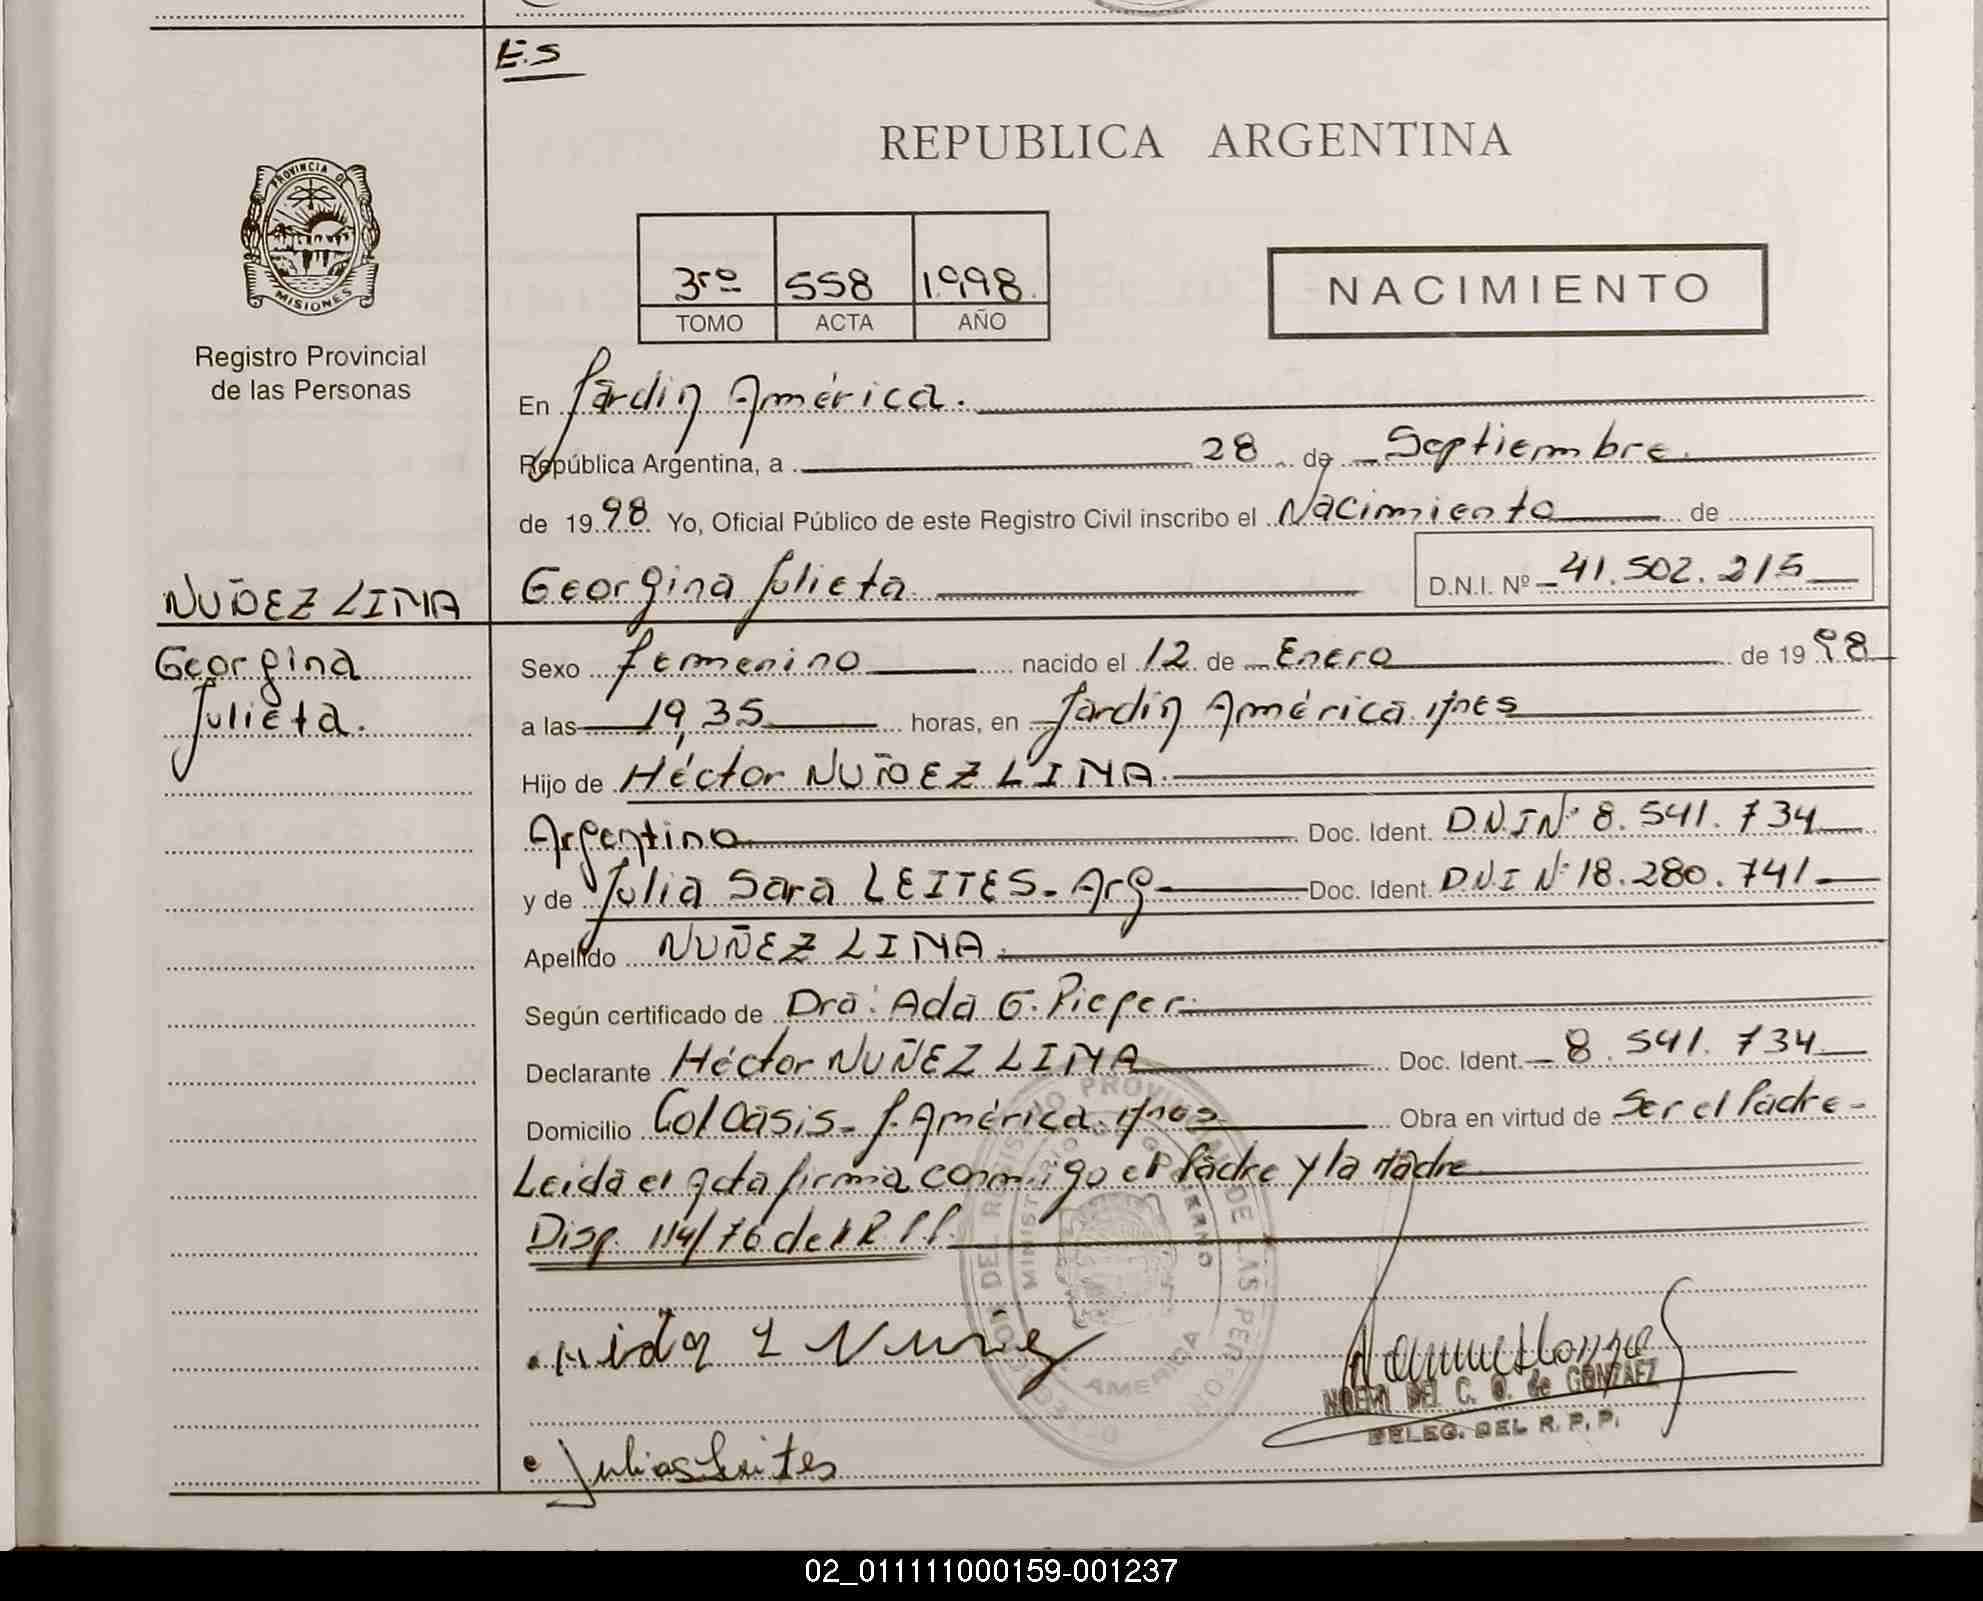 E.S
REPUBLICA ARGENTINA
PROVINCIA DE
MISIONES
Registro Provincial
de las Personas
3ro 558 1.998.
TOMO ACTA AÑO
NACIMIENTO
En Jardín América.
República Argentina, a 28 de Septiembre.
de 1998. Yo, Oficial Público de este Registro Civil inscribo el Nacimiento de
NUÑEZ LIMA
Georgina Julieta. D.N.I. Nº 41.502.215
Georgina
Julieta.
Sexo femenino nacido el 12 de Enero de 1998
a las 19,35 horas, en Jardín América Mnes
Hijo de Héctor NUÑEZ LIMA.
Argentino Doc. Ident. D.N.I Nº 8.541.734
y de Julia Sara LEITES. Arg Doc. Ident. D.N.I Nº 18.280.741
Apellido NUÑEZ LIMA.
Según certificado de Dra: Ada G. Pieper.
Declarante Héctor NUÑEZ LIMA Doc. Ident. 8.541.734
Domicilio Col Oasis. J. América. Mnes Obra en virtud de Ser el Padre.
Leida el acta firma conmigo el Padre y la Madre
Disp. 114/76 del R.P.P.
NOEMI DEL C. O. de GONZALEZ
DELEG. DEL R. P. P.
Julia S Leites
02_011111000159-001237